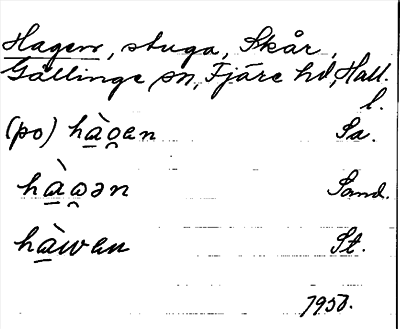 Hagen, stuga, Skår,
Gällinge sn, Fjäre hd, Hall.
l.
(po) hà̱o̯en Sa.
hà̱a̯ən Sand.
hà̱wen St.
1950.